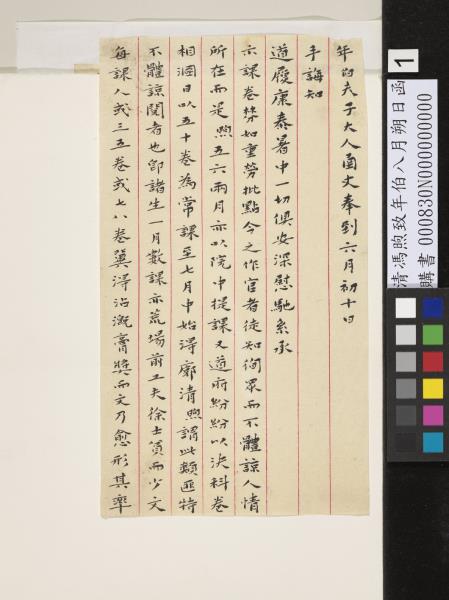 年伯夫子大人函丈奉到六月初十日
手誨知
道履康泰暑中一切俱安深慰馳系承
示課卷棼如重勞批點今之作官者徒知徇眾而不體諒人情
所在而是煦五六兩月亦以院中提課又道府紛紛以決科卷
相溷日以五十卷為常課至七月中始得廓清煦謂此類匪特
不體諒閱者也即諸生一月數課亦荒場前工夫徐士貧而少文
每課人或三五卷或七八卷冀得沾溉膏獎而文乃愈形其率
1
清馮煦致年伯八月朔日函
購書 000830N000000000